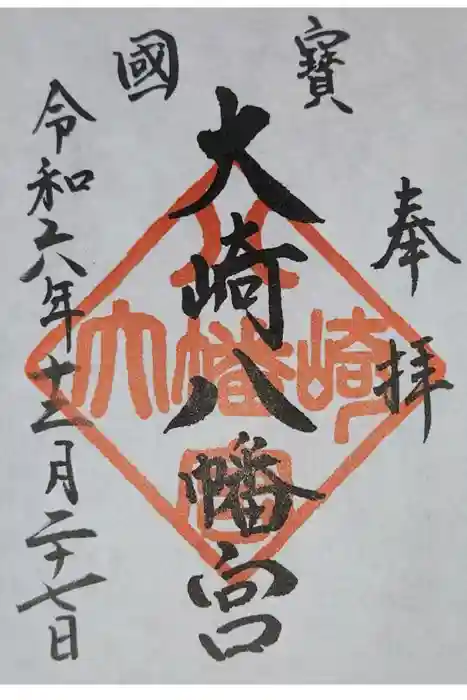 國寶
奉拝
大崎八幡宮
令和六年十二月二十七日
大崎八幡宮